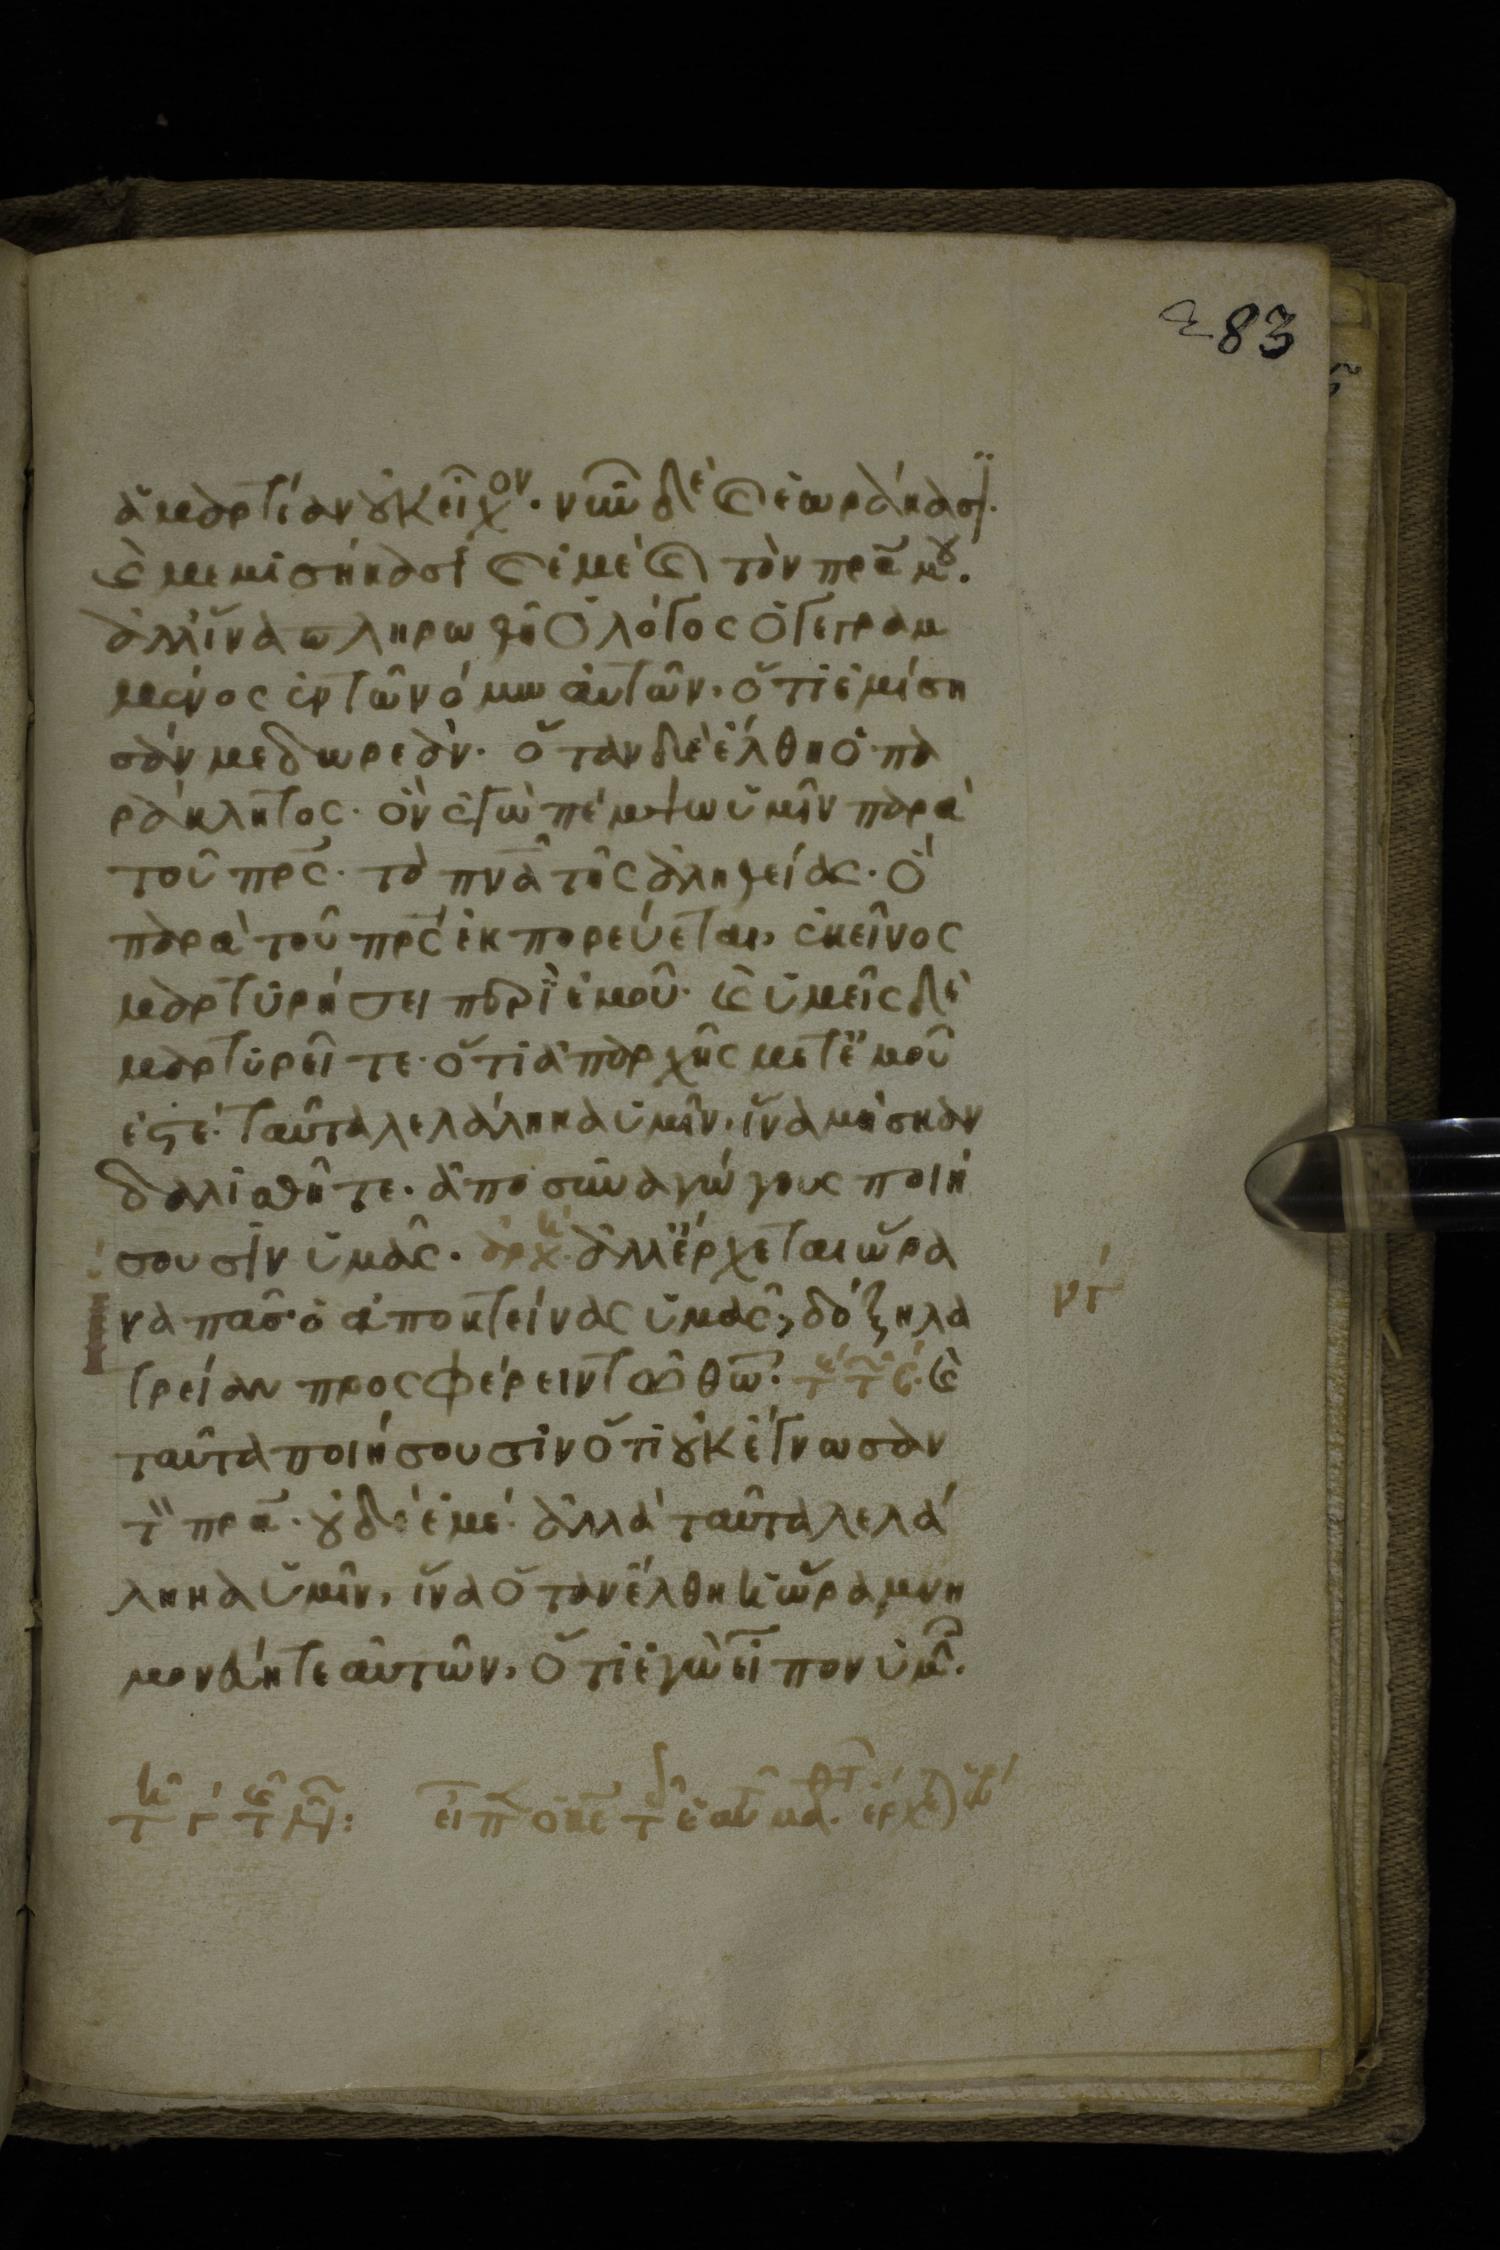 283
ἁμαρτίαν οὐκ εἶχον· νῦν δὲ καὶ ἑωράκασι·
καὶ μεμισήκασι καὶ ἐμὲ καὶ τὸν πρ̅α μου.
ἀλλ' ἵνα πληρωθῆ ὁ λόγος ὁ γεγραμ
μένος ἐν τῶ νόμω αὐτῶν. ὅτι ἐμίση
σάν με δωρεάν· ὅταν δὲ ἔλθη ὁ πα
ράκλητος· ὃν ἐγὼ πέμψω ὑμῖν παρὰ
τοῦ πρ̅ς· τὸ πν̅α τῆς ἀληθείας· ὃ
παρὰ τοῦ πρ̅ς ἐκπορεύεται, ἐκεῖνος
μαρτυρήσει περὶ ἐμοῦ· καὶ ὑμεῖς δὲ
μαρτυρεῖτε· ὅτι ἀπαρχῆς μετ' ἐμοῦ
ἐστέ· ταῦτα λελάληκα ὑμῖν, ἵνα μὴ σκαν
δαλισθῆτε. ἀποσυναγώγους ποιή
σουσιν ὑμᾶς· ἀρχ. ἀλλ' ἔρχεται ὥρα
να πᾶς ὁ ἀποκτείνας ὑμᾶς, δόξη λα
τρείαν προσφέρειν τῶ θω̅· καὶ
ταῦτα ποιήσουσιν ὅτι οὐκ ἔγνωσαν
τὸν πρ̅α· οὐδὲ ἐμέ· ἀλλὰ ταῦτα λελά
ληκα ὑμῖν, ἵνα ὅταν ἔλθη ἡ ὥρα μνη
μονεύητε αὐτῶν, ὅτι ἐγὼ εἶπον ὑμῖν.
νγ